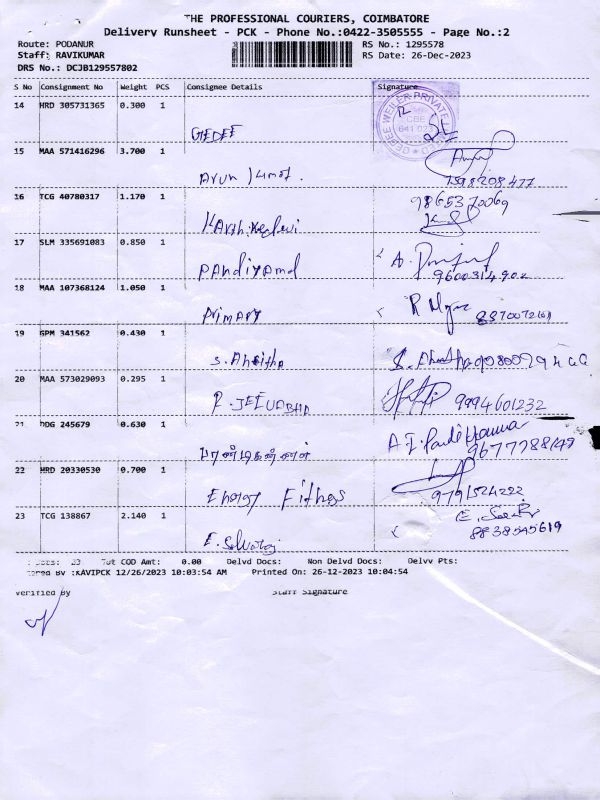 THE PROFESSIONAL COURIERS, COIMBATORE
Delivery Runsheet - PCK - Phone No.:0422-3505555 - Page No.:2
Route: PODANUR
RS No.: 1295578
Staff: RAVIKUMAR
RS Date: 26-Dec-2023
DRS No.: DCJB129557802
S No Consignment No Weight PCS Consignee Details Signature
14 HRD 305731365 0.300 1
GEDEE
GEDEE WEILER PRIVATE
CBE
641 023
15 MAA 571416296 3.700 1
Arun Kumar.
7598208477
16 TCG 40780317 1.170 1
9865370069
17 SLM 335691083 0.850 1
9600314902
18 MAA 107368124 1.050 1
Primary
19 GPM 341562 0.430 1
20 MAA 573029093 0.295 1
9994601232
21 DDG 245679 0.630 1
22 HRD 20330530 0.700 1
9791524222
23 TCG 138867 2.140 1
E. Selvaraj
8838545619
Tot COD Amt: 0.00 Delvd Docs: Non Delvd Docs: Delvv Pts:
BY :KAVIPCK 12/26/2023 10:03:54 AM Printed On: 26-12-2023 10:04:54
Verified By Staff Signature